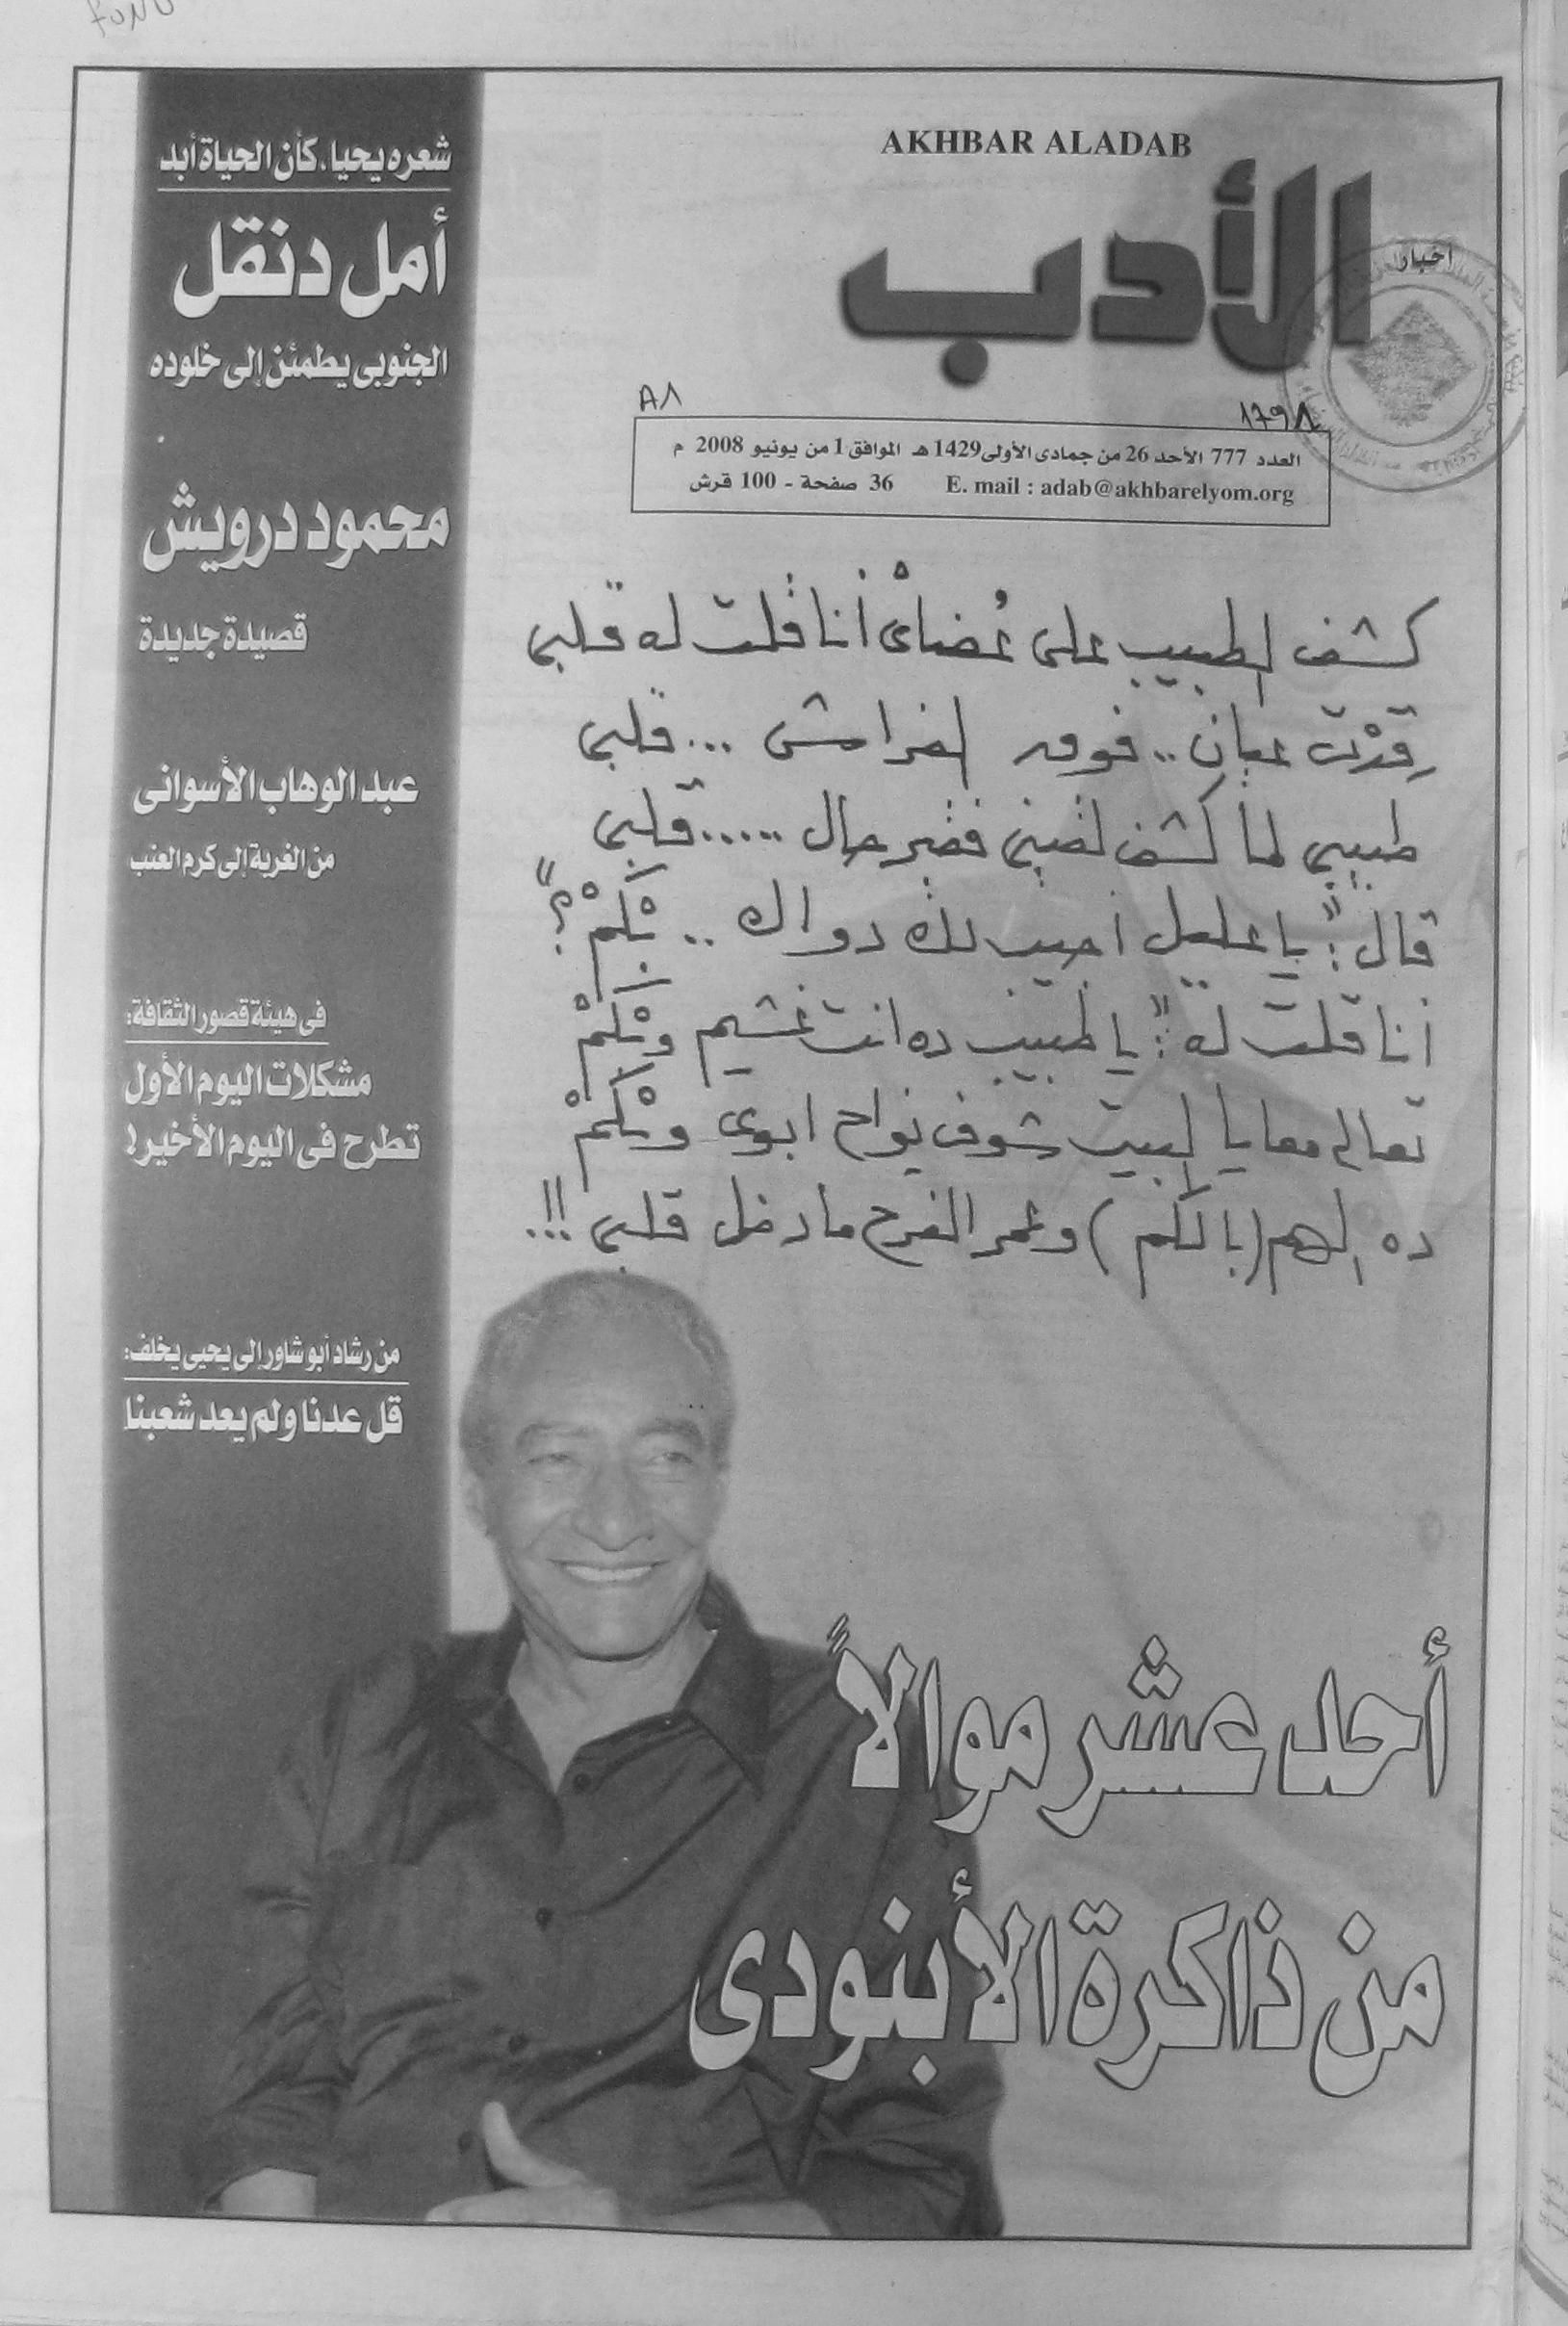 AKHBAR ALADAB
أخبار
الأدب
العدد 777 الأحد 26 من جمادى الأولى 1429 هـ الموافق 1 من يونيو 2008 م
E. mail : adab@akhbarelyom.org 36 صفحة - 100 قرش
كشف الطبيب على عُضاىْ أنا قلت له قلبى
رقدْت عيان .. فوق الفراش ... قلبى
طبيبى لما كشف لقينى فقير حال ..... قلبى
قال : "يا عليل أجيب لك دواك .. بْكَمْ ؟"
أنا قلت له : "يا طبيب ده انت غشيم وبْكَمْ
تعالى معايا البيت شوف نواح ابوى وبْكَمْ
ده الهم (بالكم) وعمر الفرح ما دخل قلبى !!.
أحد عشر موالاً
من ذاكرة الأبنودى
شعره يحيا، كأن الحياة أبد
أمل دنقل
الجنوبى يطمئن إلى خلوده
محمود درويش
قصيدة جديدة
عبد الوهاب الأسوانى
من الغربة إلى كرم العنب
فى هيئة قصور الثقافة:
مشكلات اليوم الأول
تطرح فى اليوم الأخير!
من رشاد أبو شاور إلى يحيى يخلف:
قل عدنا ولم يعد شعبنا